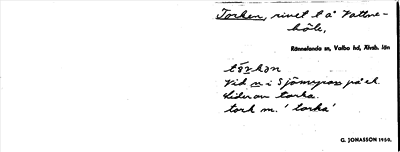 Torken, rivet t å Vattne-
höle,
Rännelanda sn, Valbo hd, Älvsb. län
tårkən
Vid n i Sjömyrar på ek
torka.
tork m. ' torka'
G. JONASSON 1950.